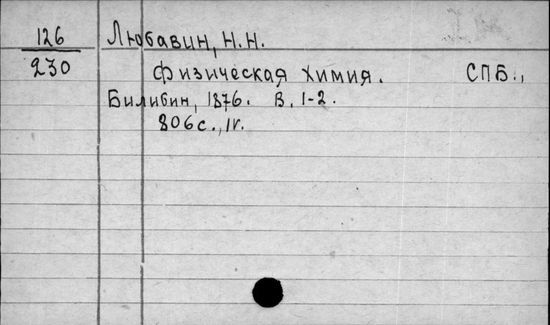 126 Любавин, Н.Н.
230 Физическая химия. СПБ.,
Билибин, 1876. В. 1-2.
806с., 1г.